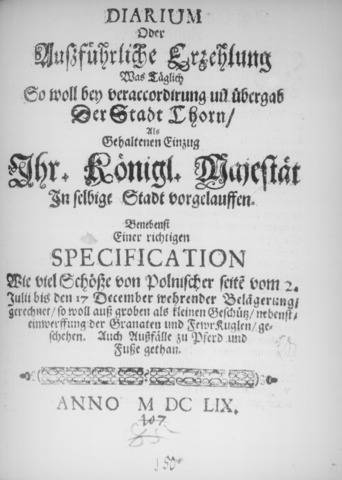 DIARIUM
Oder
Außführliche Erzehlung
Was Täglich
So woll bey veraccordirung uñ übergab
Der Stadt Thorn/
Als
Gehaltenen Einzug
Ihr. Königl. Majestät
In selbige Stadt vorgelauffen.
Benebenst
Einer richtigen
SPECIFICATION
Wie viel Schöße von Polnischer seitẽ vom 2.
Julii bis den 17 December wehrender Belägerung/
gerechnet/ so woll auß groben als kleinen Geschütz/ nebenst
einwerffung der Granaten und FewrKuglen/ ge-
schehen. Auch Außfälle zu Pferd und
Fuße gethan.
ANNO M DC LIX.
107
150